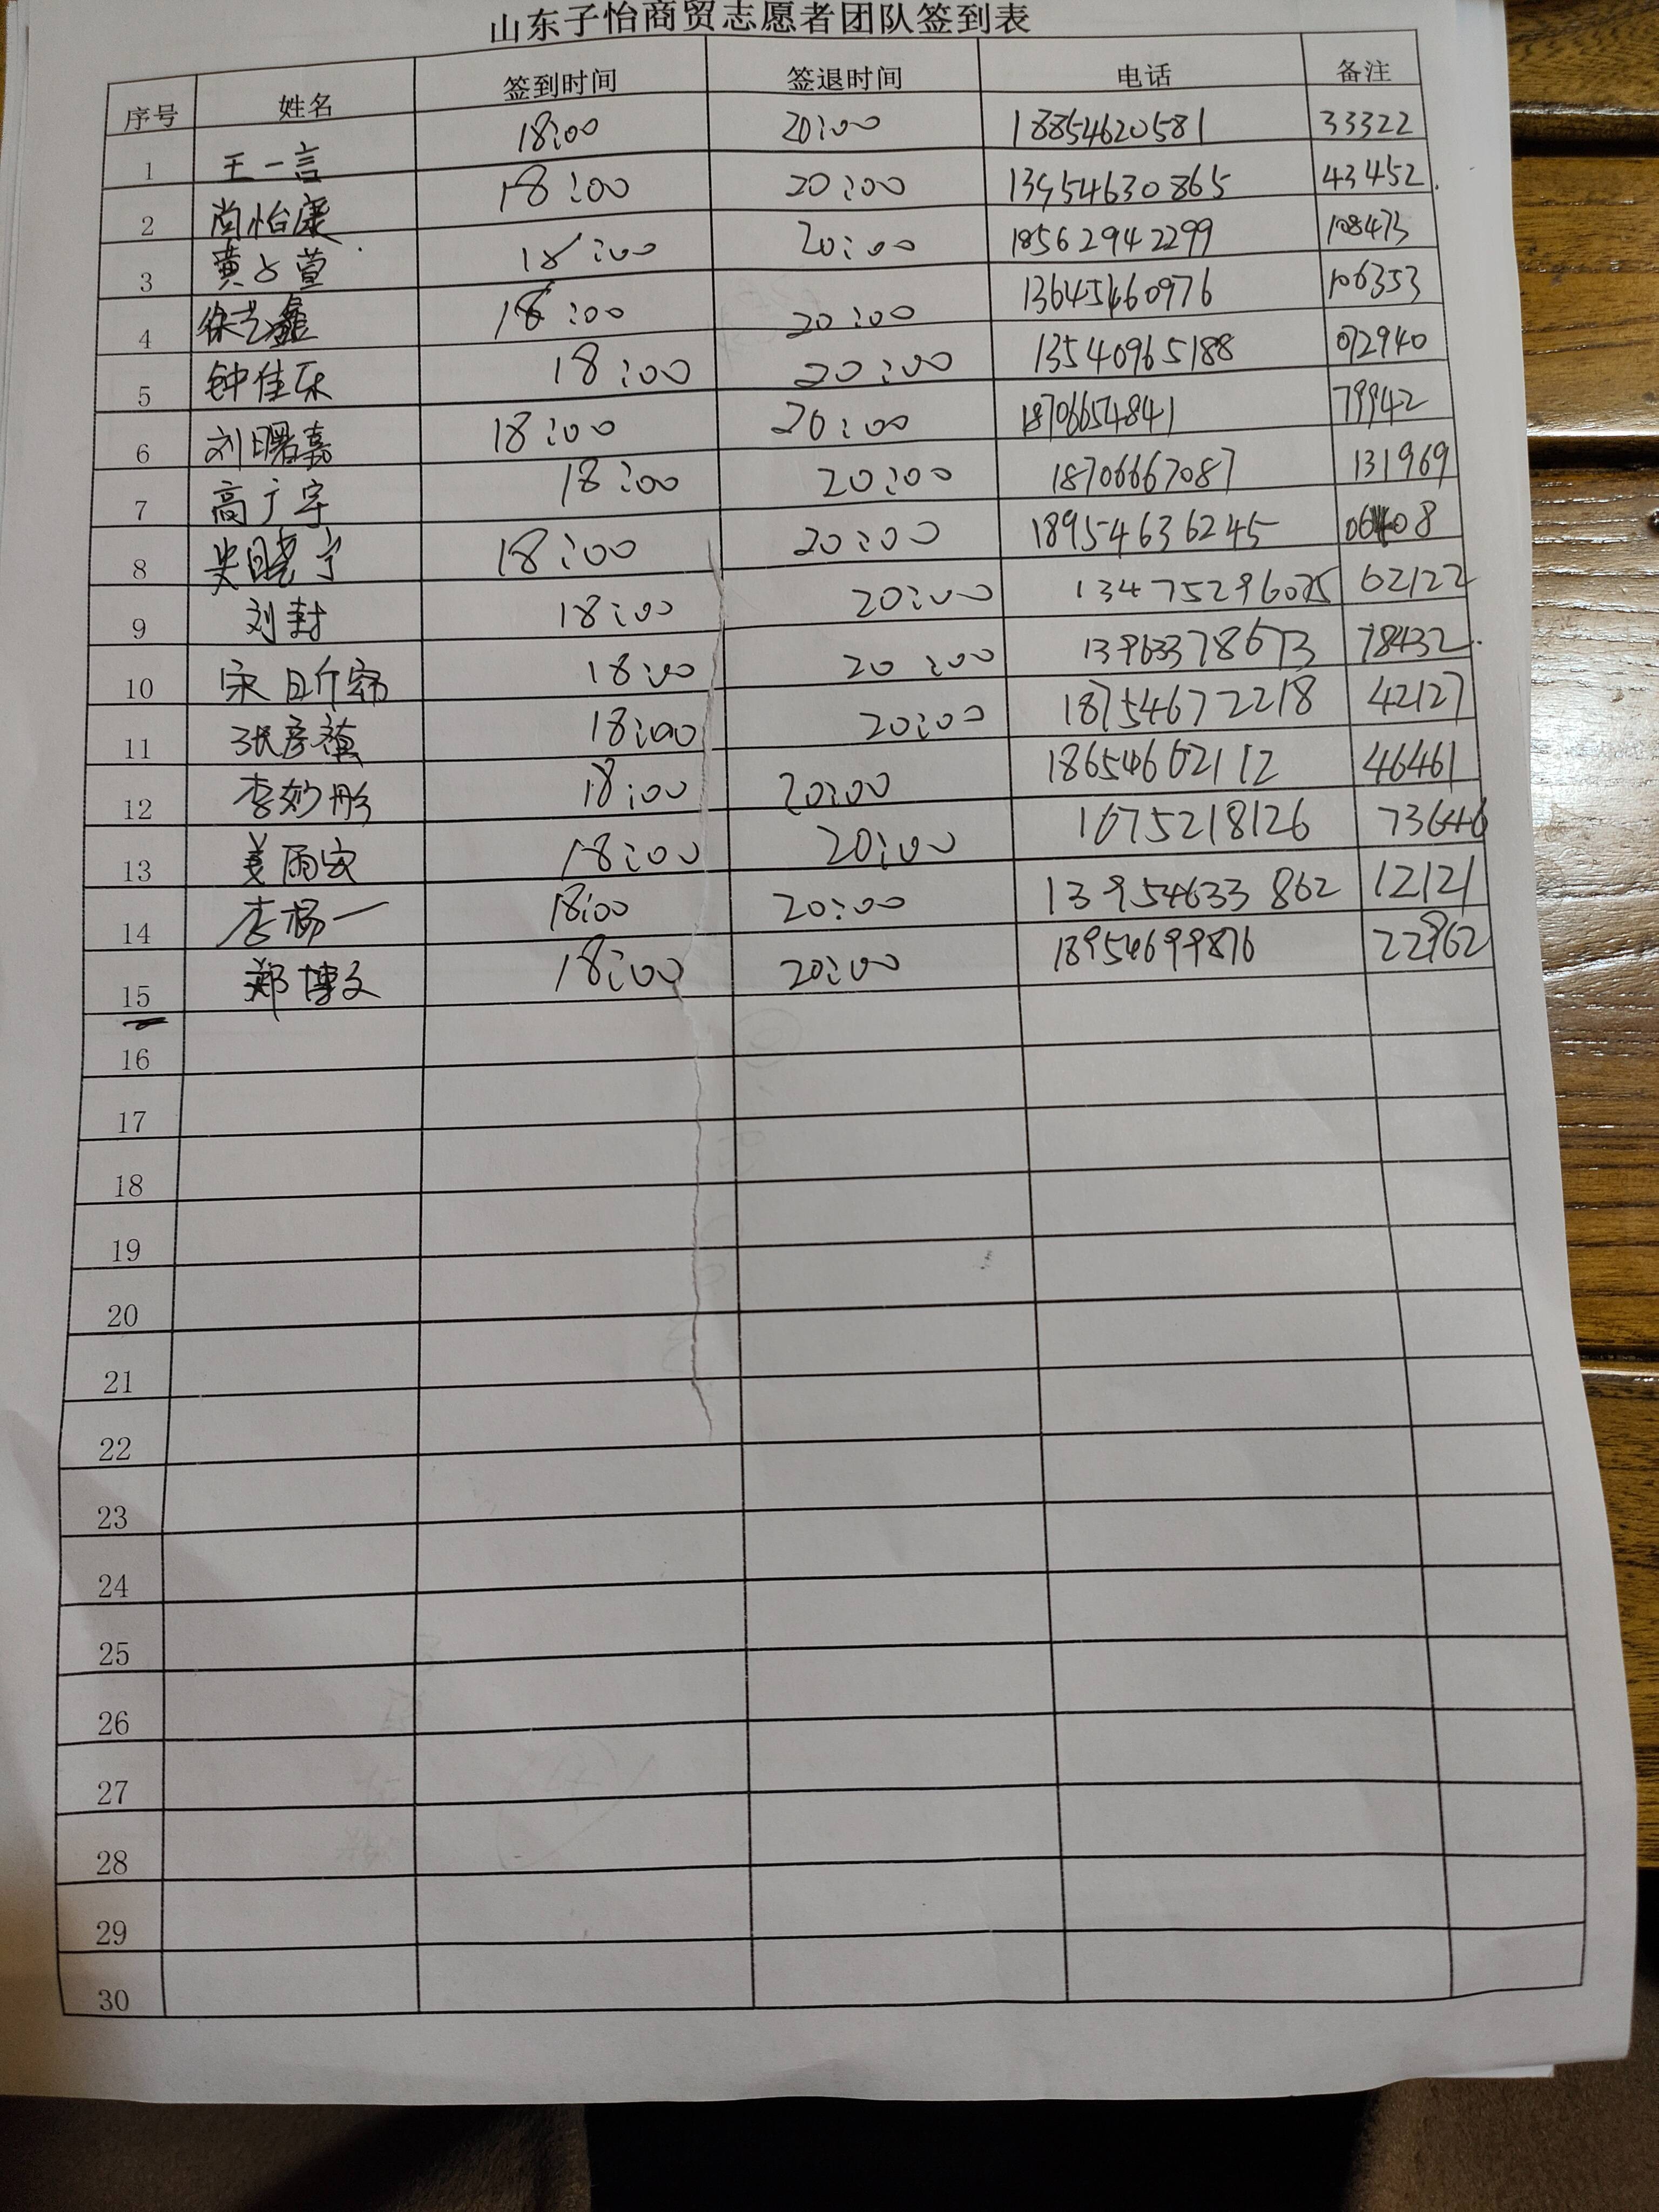 山东子怡商贸志愿者团队签到表
序号 姓名 签到时间 签退时间 电话 备注
1 王一言 18:00 20:00 18854620581 33322
2 尚怡康 18:00 20:00 13954630865 43452
3 黄占萱 18:00 20:00 18562942299 108473
4 徐艺鑫 18:00 20:00 13645460976 106353
5 钟佳乐 18:00 20:00 13540965188 092940
6 刘曙嘉 18:00 20:00 18706654841 79942
7 高广宇 18:00 20:00 18706667087 131969
8 晓宁 18:00 20:00 18954636245
9 刘封 18:00 20:00 62122
10 宋昕 18:00 20:00 13963378673 78432
11 张彦 18:00 20:00 18754672218 42127
12 李妙彤 18:00 20:00 18654602112 46461
13 姜雨 18:00 20:00 1675218126 73646
14 李杨一 18:00 20:00 13954633862 12121
15 郑博文 18:00 20:00 13954699876 22962
16
17
18
19
20
21
22
23
24
25
26
27
28
29
30